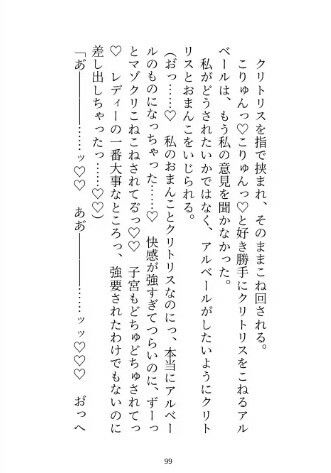 クリトリスを指で挟まれ、そのままこね回される。
こりゅんっ♡こりゅんっ♡と好き勝手にクリトリスをこねるアル
ベールは、もう私の意見を聞かなかった。
私がどうされたいかではなく、アルベールがしたいようにクリト
リスとおまんこをいじられる。
(お゛っ……♡　私のおまんことクリトリスなのにっ、本当にアルベー
ルのものになっちゃった……♡　快感が強すぎてつらいのに、ずーっ
とマゾクリこねこねされてるっ♡♡　子宮もどちゅどちゅされてっ
♡　レディーの一番大事なところっ、強要されたわけでもないのに
差し出しちゃったっ……♡♡)
「あ゛―――――ッ♡♡　ああ゛―――――ッッ♡♡♡　お゛っへ
99